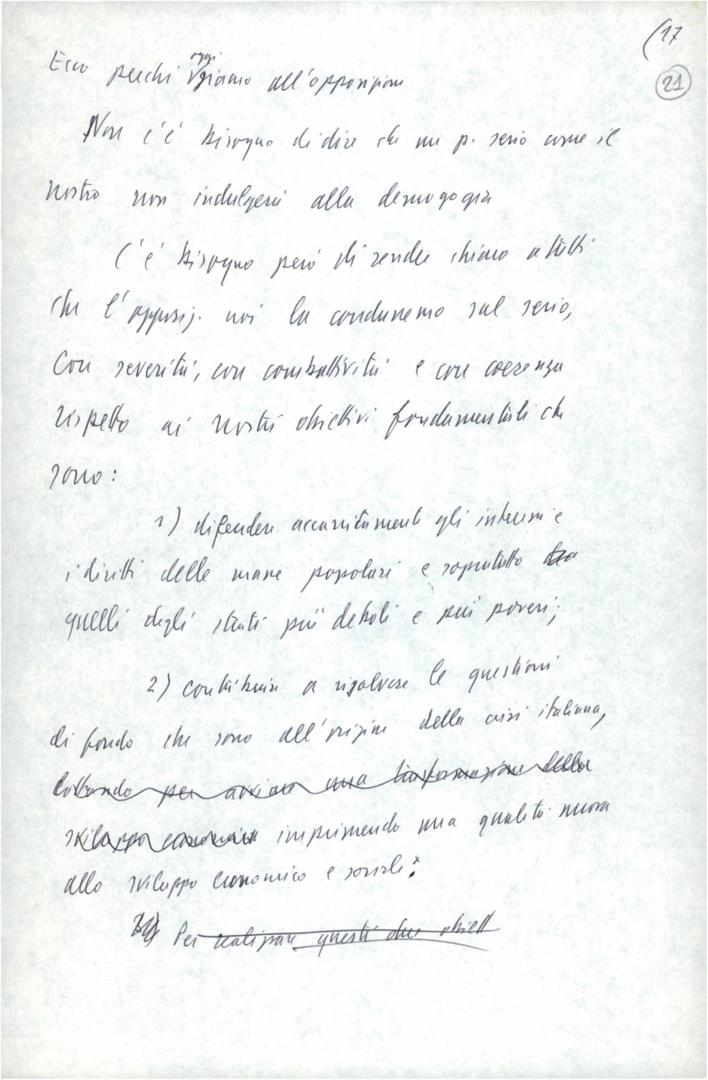 (17
21
Ecco perché oggi siamo all'opposizione
Non c'è bisogno di dire che un p. serio come il
nostro non indulgerà alla demogogia
C'è bisogno però di rendere chiaro a tutti
che l'opposiz. noi la condurremo sul serio,
con severità, con combattività e con coerenza
rispetto ai nostri obiettivi fondamentali che
sono:
1) difendere accanitamente gli interessi e
i diritti delle masse popolari e sopratutto
quelli degli strati più deboli e più poveri;
2) contribuire a risolvere le questioni
di fondo che sono all'origine della crisi italiana,
lottando per avviare una trasformazione della
sviluppo economico imprimendo una qualità nuova
allo sviluppo economico e sociale:
Per realizzare questi due obiett